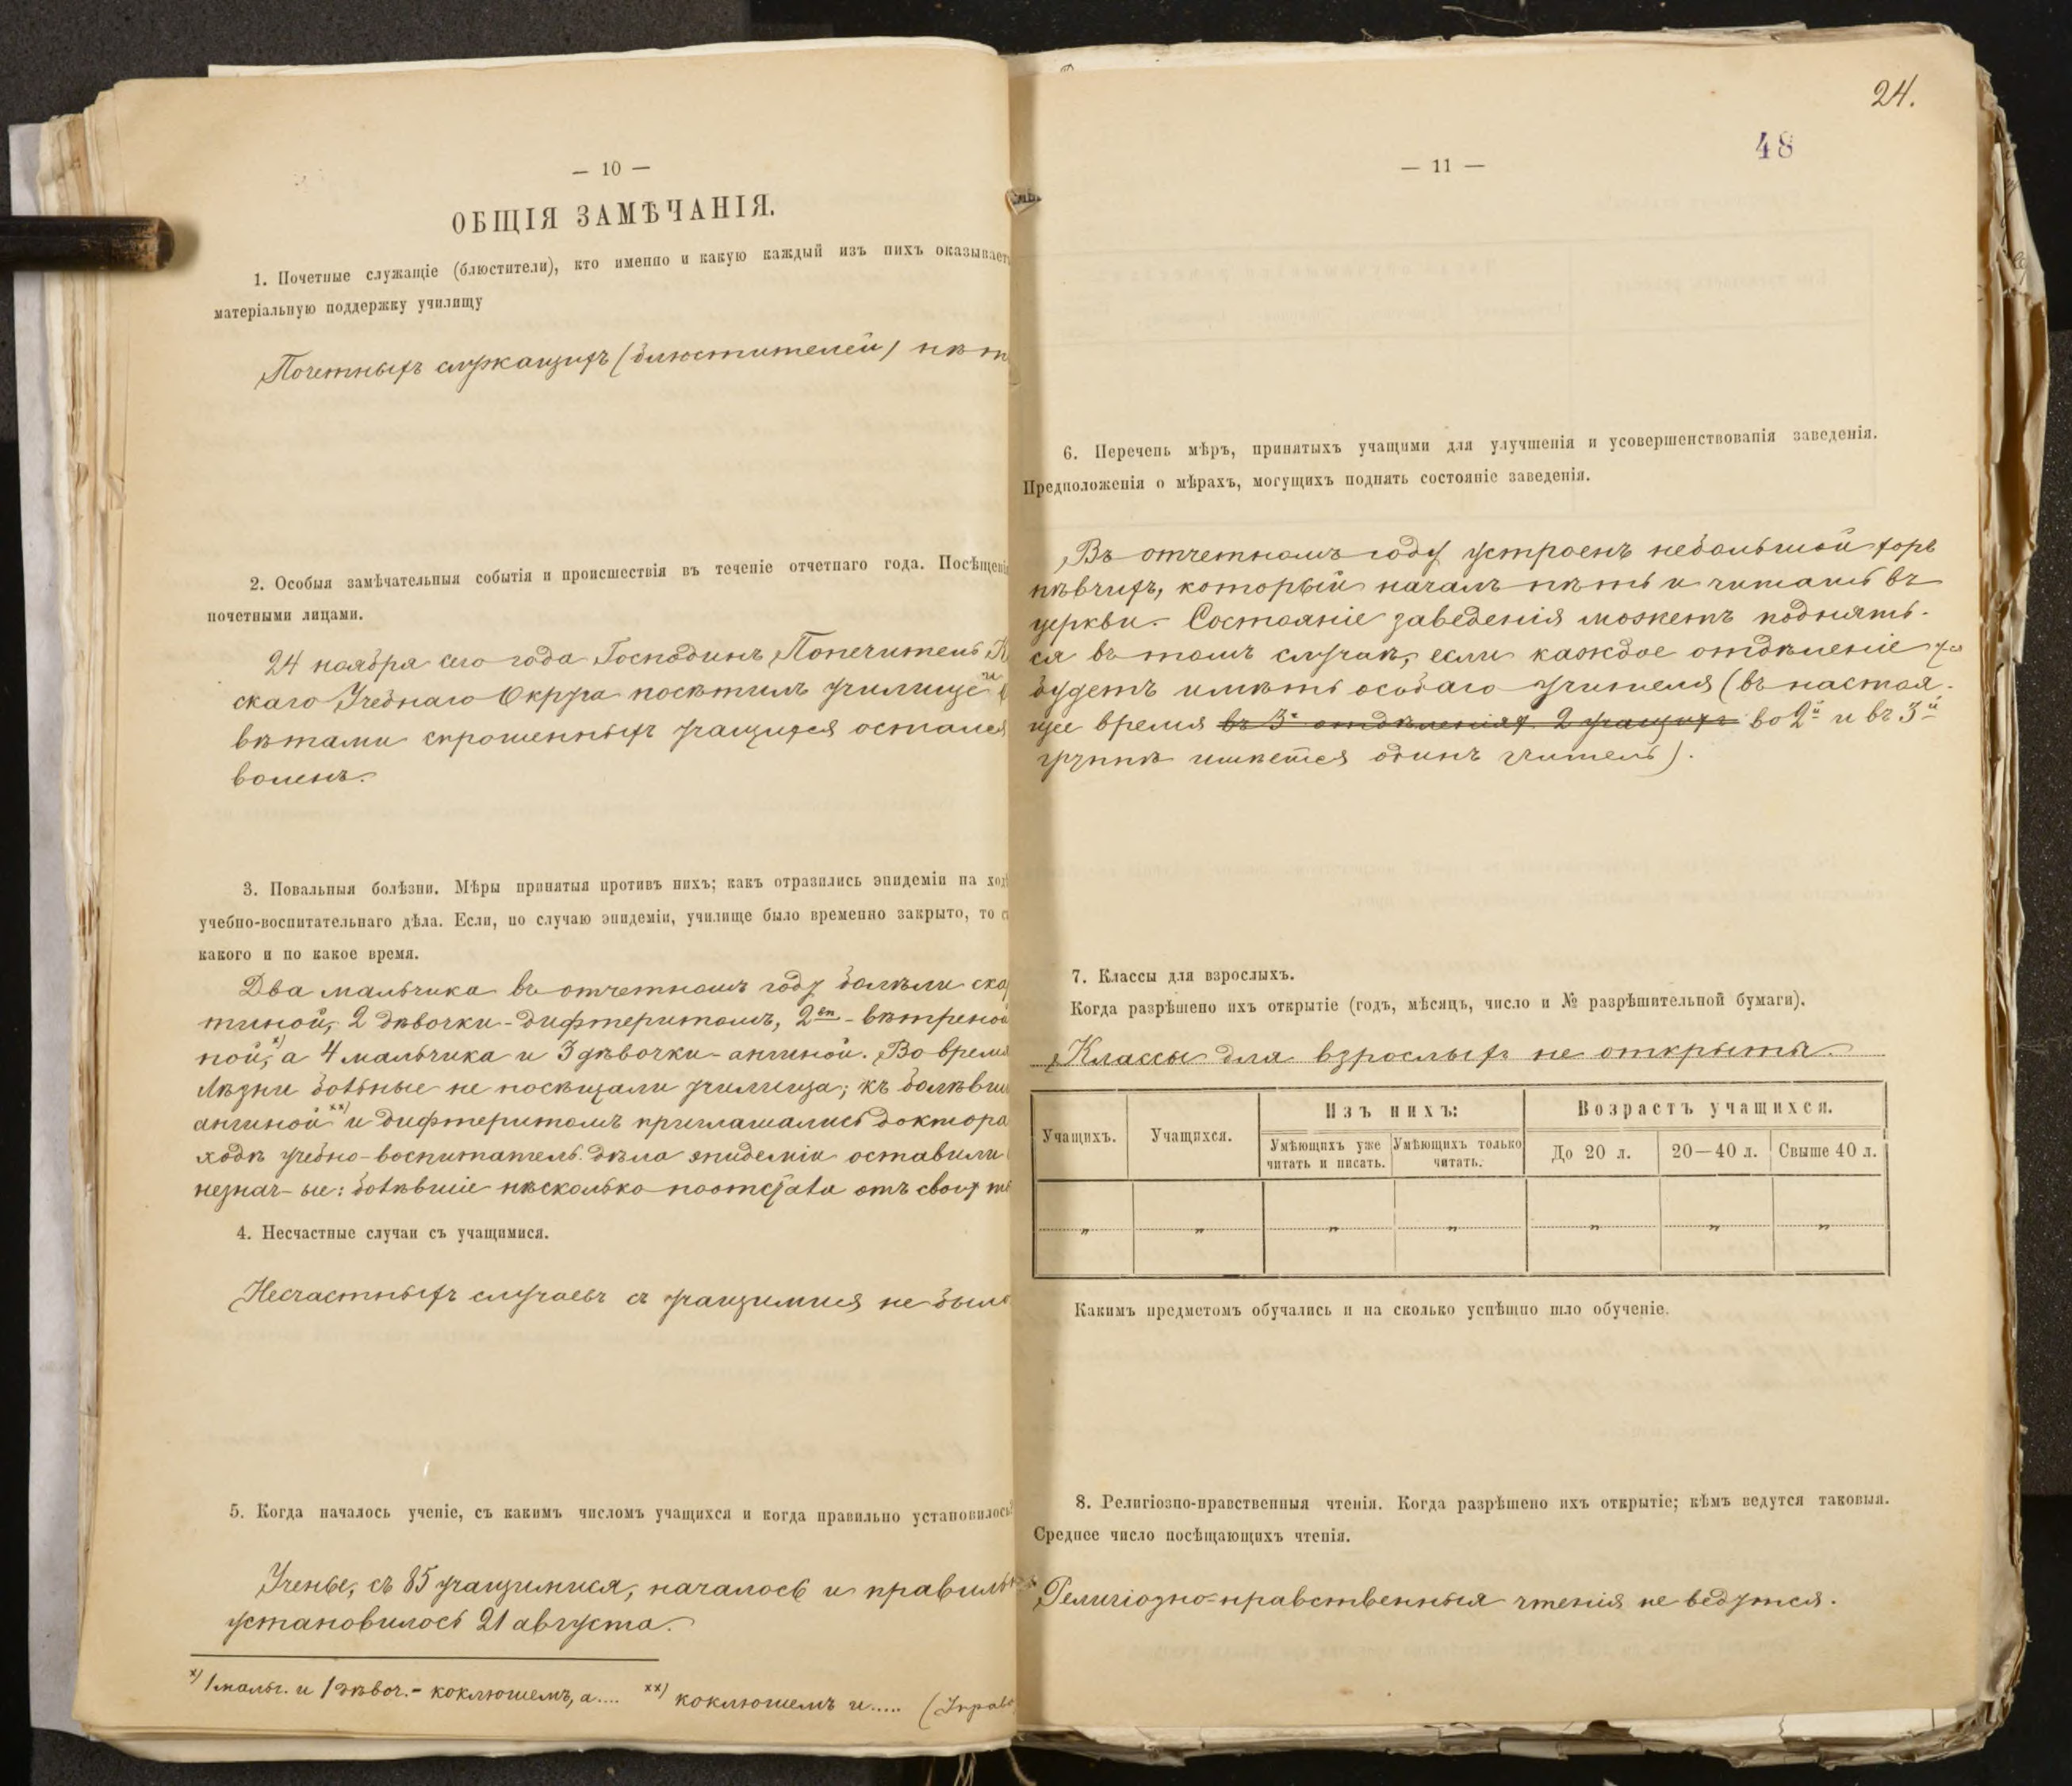 — 10 —
ОБЩІЯ ЗАМѢЧАНІЯ.
1. Почетные служащіе (блюстители), кто именно и какую каждый изъ нихъ оказывает
матеріальную поддержку училищу
Почетныхъ служащихъ (блюстителей) нѣт
2. Особыя замѣчательныя событія и происшествія въ теченіе отчетнаго года. Посѣщені
почетными лицами.
24 ноября сего года Господинъ Попечитель К
скаго Учебнаго Округа посѣтилъ училище и
вѣтами спрошенныхъ учащихся остался
воленъ.
3. Повальныя болѣзни. Мѣры принятыя противъ нихъ; какъ отразились эпидеміи на ход
учебно-воспитательнаго дѣла. Если, по случаю эпидеміи, училище было временно закрыто, то с
какого и по какое время.
Два мальчика въ отчетномъ году болѣли ска
тиной, 2 дѣвочки - дифтеритомъ, 2 - вѣтреной
ной, х) а 4 мальчика и 3 дѣвочки - ангиной. Во время
лѣзни больные не посѣщали училища; къ болѣвш
ангиной хх) и дифтеритомъ приглашались доктора
ходѣ учебно-воспитатель. дѣла эпидеміи оставили
незнач-ые: болѣвшіе нѣсколько поотстали отъ своих то
4. Несчастные случаи съ учащимися.
Несчастныхъ случаевъ съ учащимися не было
5. Когда началось ученіе, съ какимъ числомъ учащихся и когда правильно установилось
Ученье, съ 85 учащимися, началось и правильн
установилось 21 августа.
х) 1 мальч. и 1 дѣвоч. - коклюшемъ, а.... хх) коклюшемъ и..... (Исправ
24.
48
— 11 —
6. Перечень мѣръ, принятыхъ учащими для улучшенія и усовершенствованія заведенія.
Предположенія о мѣрахъ, могущихъ поднять состояніе заведенія.
Въ отчетномъ году устроенъ небольшой хоръ
пѣвчихъ, который началъ пѣть и читать въ
церкви. Состояніе заведенія можетъ поднять-
ся въ томъ случаѣ, если каждое отдѣленіе
будетъ имѣть особаго учителя (въ настоя-
щее время въ 3х отдѣленіях 2 учащихъ во 2й и въ 3й
группѣ имѣется одинъ учитель).
7. Классы для взрослыхъ.
Когда разрѣшено ихъ открытіе (годъ, мѣсяцъ, число и № разрѣшительной бумаги).
Классы для взрослыхъ не открыты.
Учащихъ.
Учащихся.
Изъ нихъ:
Умѣющихъ уже читать и писать.
Умѣющихъ только читать.
Возрастъ учащихся.
До 20 л.
20—40 л.
Свыше 40 л.
„ „ „ „ „ „ „
Какимъ предметомъ обучались и на сколько успѣшно шло обученіе.
8. Религіозно-нравственныя чтенія. Когда разрѣшено ихъ открытіе; кѣмъ ведутся таковыя.
Среднее число посѣщающихъ чтенія.
Религіозно-нравственныя чтенія не ведутся.